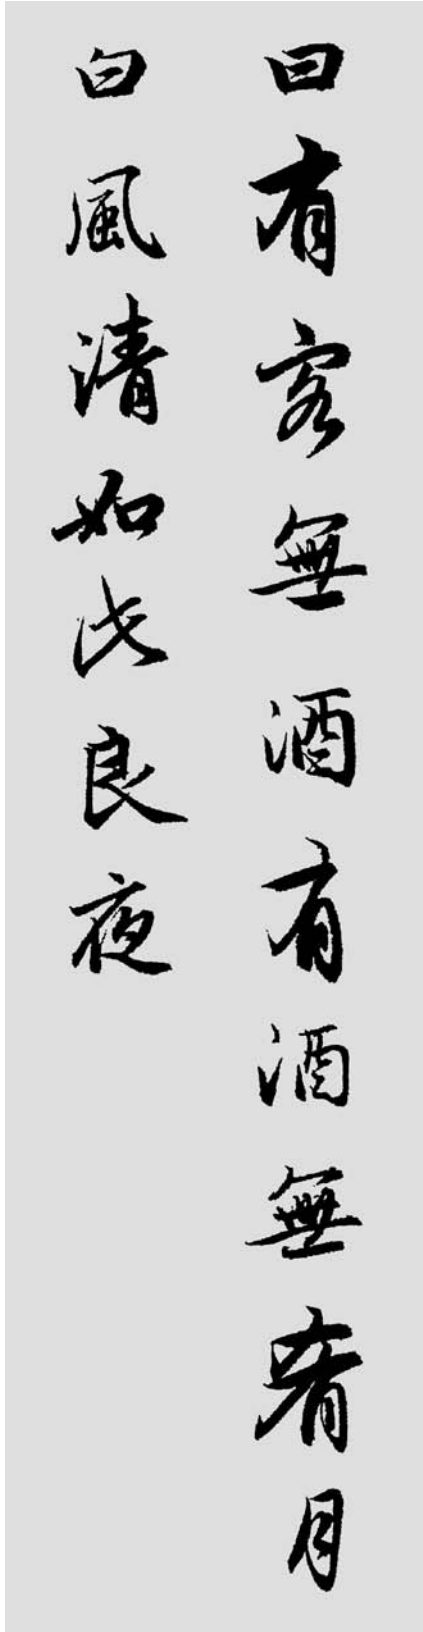 曰有客無酒有酒無肴月
白風清如此良夜